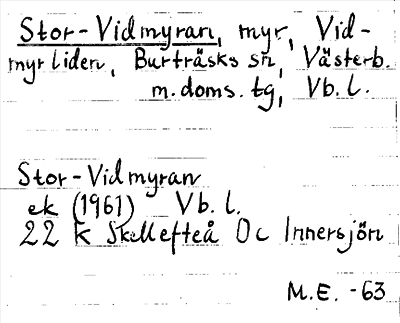 Stor-Vidmyran, myr, Vid-
myrliden, Burträsks sn, Västerb.
m.doms.tg, Vb.l.
Stor-Vidmyran
ek (1961) Vb.l.
22 K Skellefteå Oc Innersjön
M.E. -63